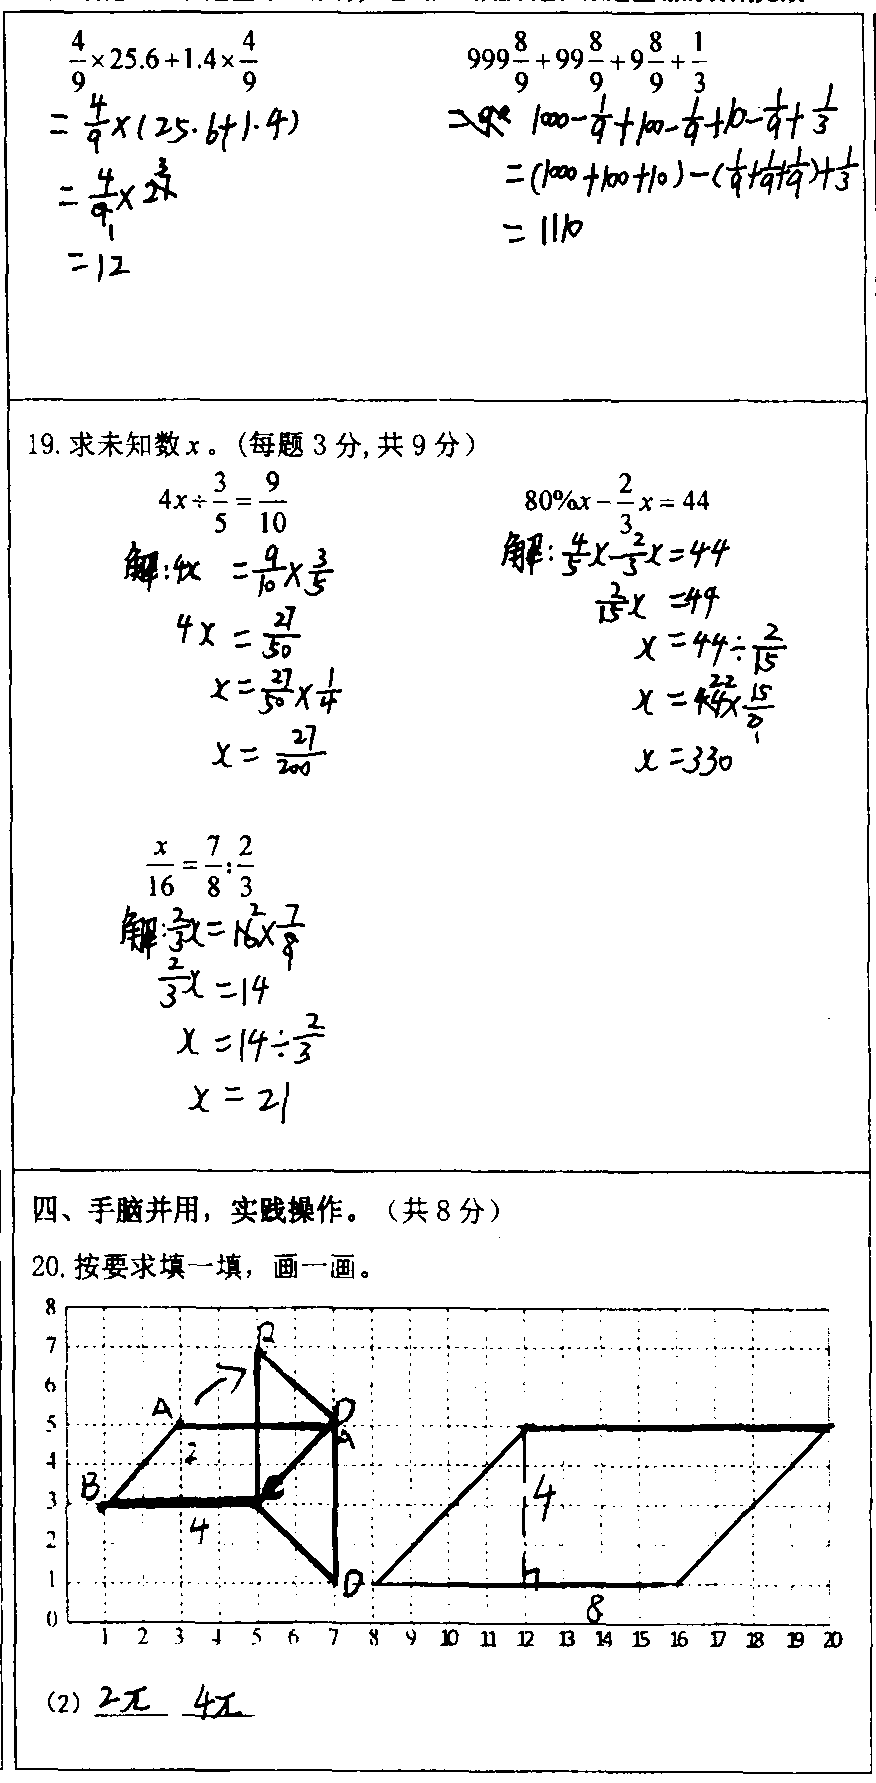 4/9×25.6+1.4×4/9
=4/9×(25.6+1.4)
=4/9×27 3
1
=12
999 8/9+99 8/9+9 8/9+1/3
= 1000-1/9+100-1/9+10-1/9+1/3
=(1000+100+10)-(1/9+1/9+1/9)+1/3
=1110
19.求未知数x。(每题3分,共9分)
4x÷3/5=9/10
解:4x =9/10×3/5
4x=27/50
x=27/50×1/4
x=27/200
80%x-2/3x=44
解:4/5x-2/3x=44
2/15x =44
x=44÷2/15
x=44 22×15/2 1
x=330
x/16=7/8:2/3
解:2/3x=16 2×7/8 1
2/3x=14
x=14÷2/3
x=21
四、手脑并用，实践操作。（共8分）
20.按要求填一填，画一画。
8
7
6
5
4
3
2
1
0
A
B
2
4
D
A
D
4
8
1 2 3 4 5 6 7 8 9 10 11 12 13 14 15 16 17 18 19 20
(2) 2π 4π